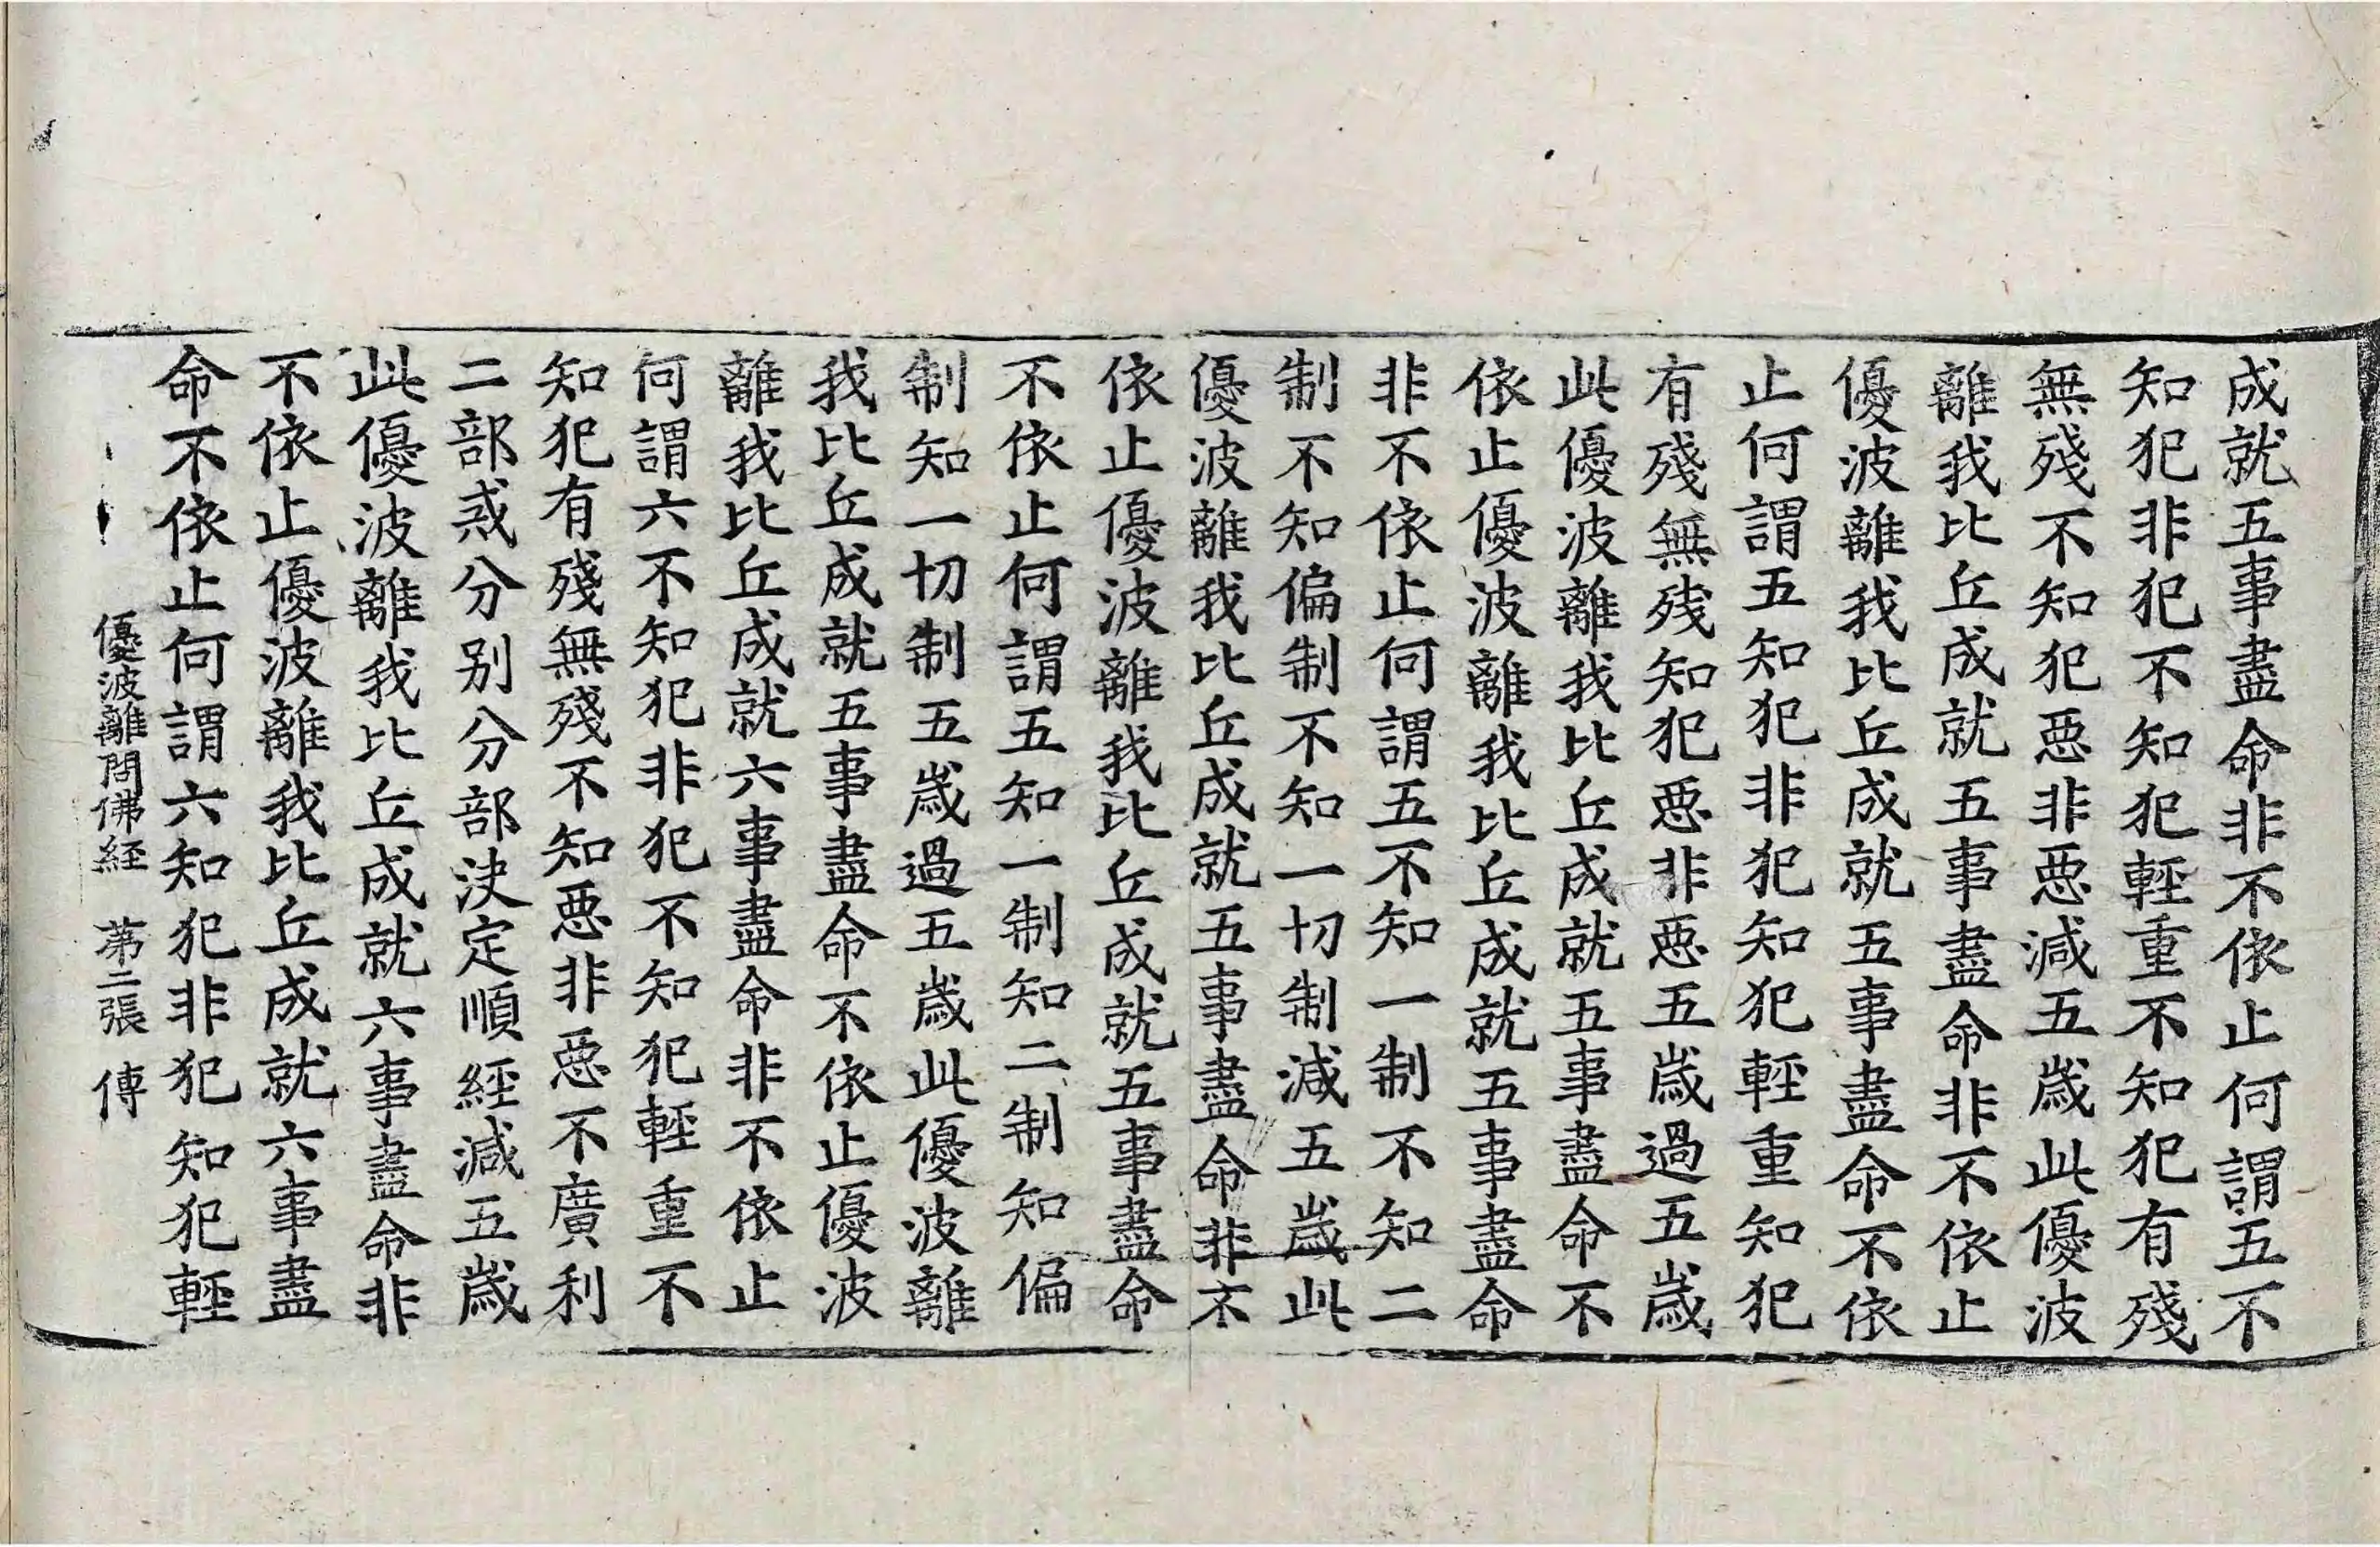 成就五事盡命非不依止何謂五不
知犯非犯不知犯輕重不知犯有殘
無殘不知犯惡非惡減五歲此優波
離我比丘成就五事盡命非不依止
優波離我比丘成就五事盡命不依
止何謂五知犯非犯知犯輕重知犯
有殘無残知犯惡非惡五歲過五歲
此優波離我比丘成就五事盡命不
依止優波離我比丘成就五事盡命
非不依止何謂五不知一制不知二
制不知偏制不知一切制減五歲此
優波離我比丘成就五事盡命非不
依止優波離我比丘成就五事盡命
不依止何謂五知一制知二制知偏
制知一切制五歲過五歲此優波離
我比丘成就五事盡命不依止優波
離我比丘成就六事盡命非不依止
何謂六不知犯非犯不知犯輕重不
知犯有殘無殘不知惡非惡不廣利
二部惑分别分部決定順經減五歲
此優波離我比丘成就六事盡命非
不依止優波離我比丘成就六事盡
命不依止何謂六知犯非犯知犯輕
優波離問佛經 第二張 傳